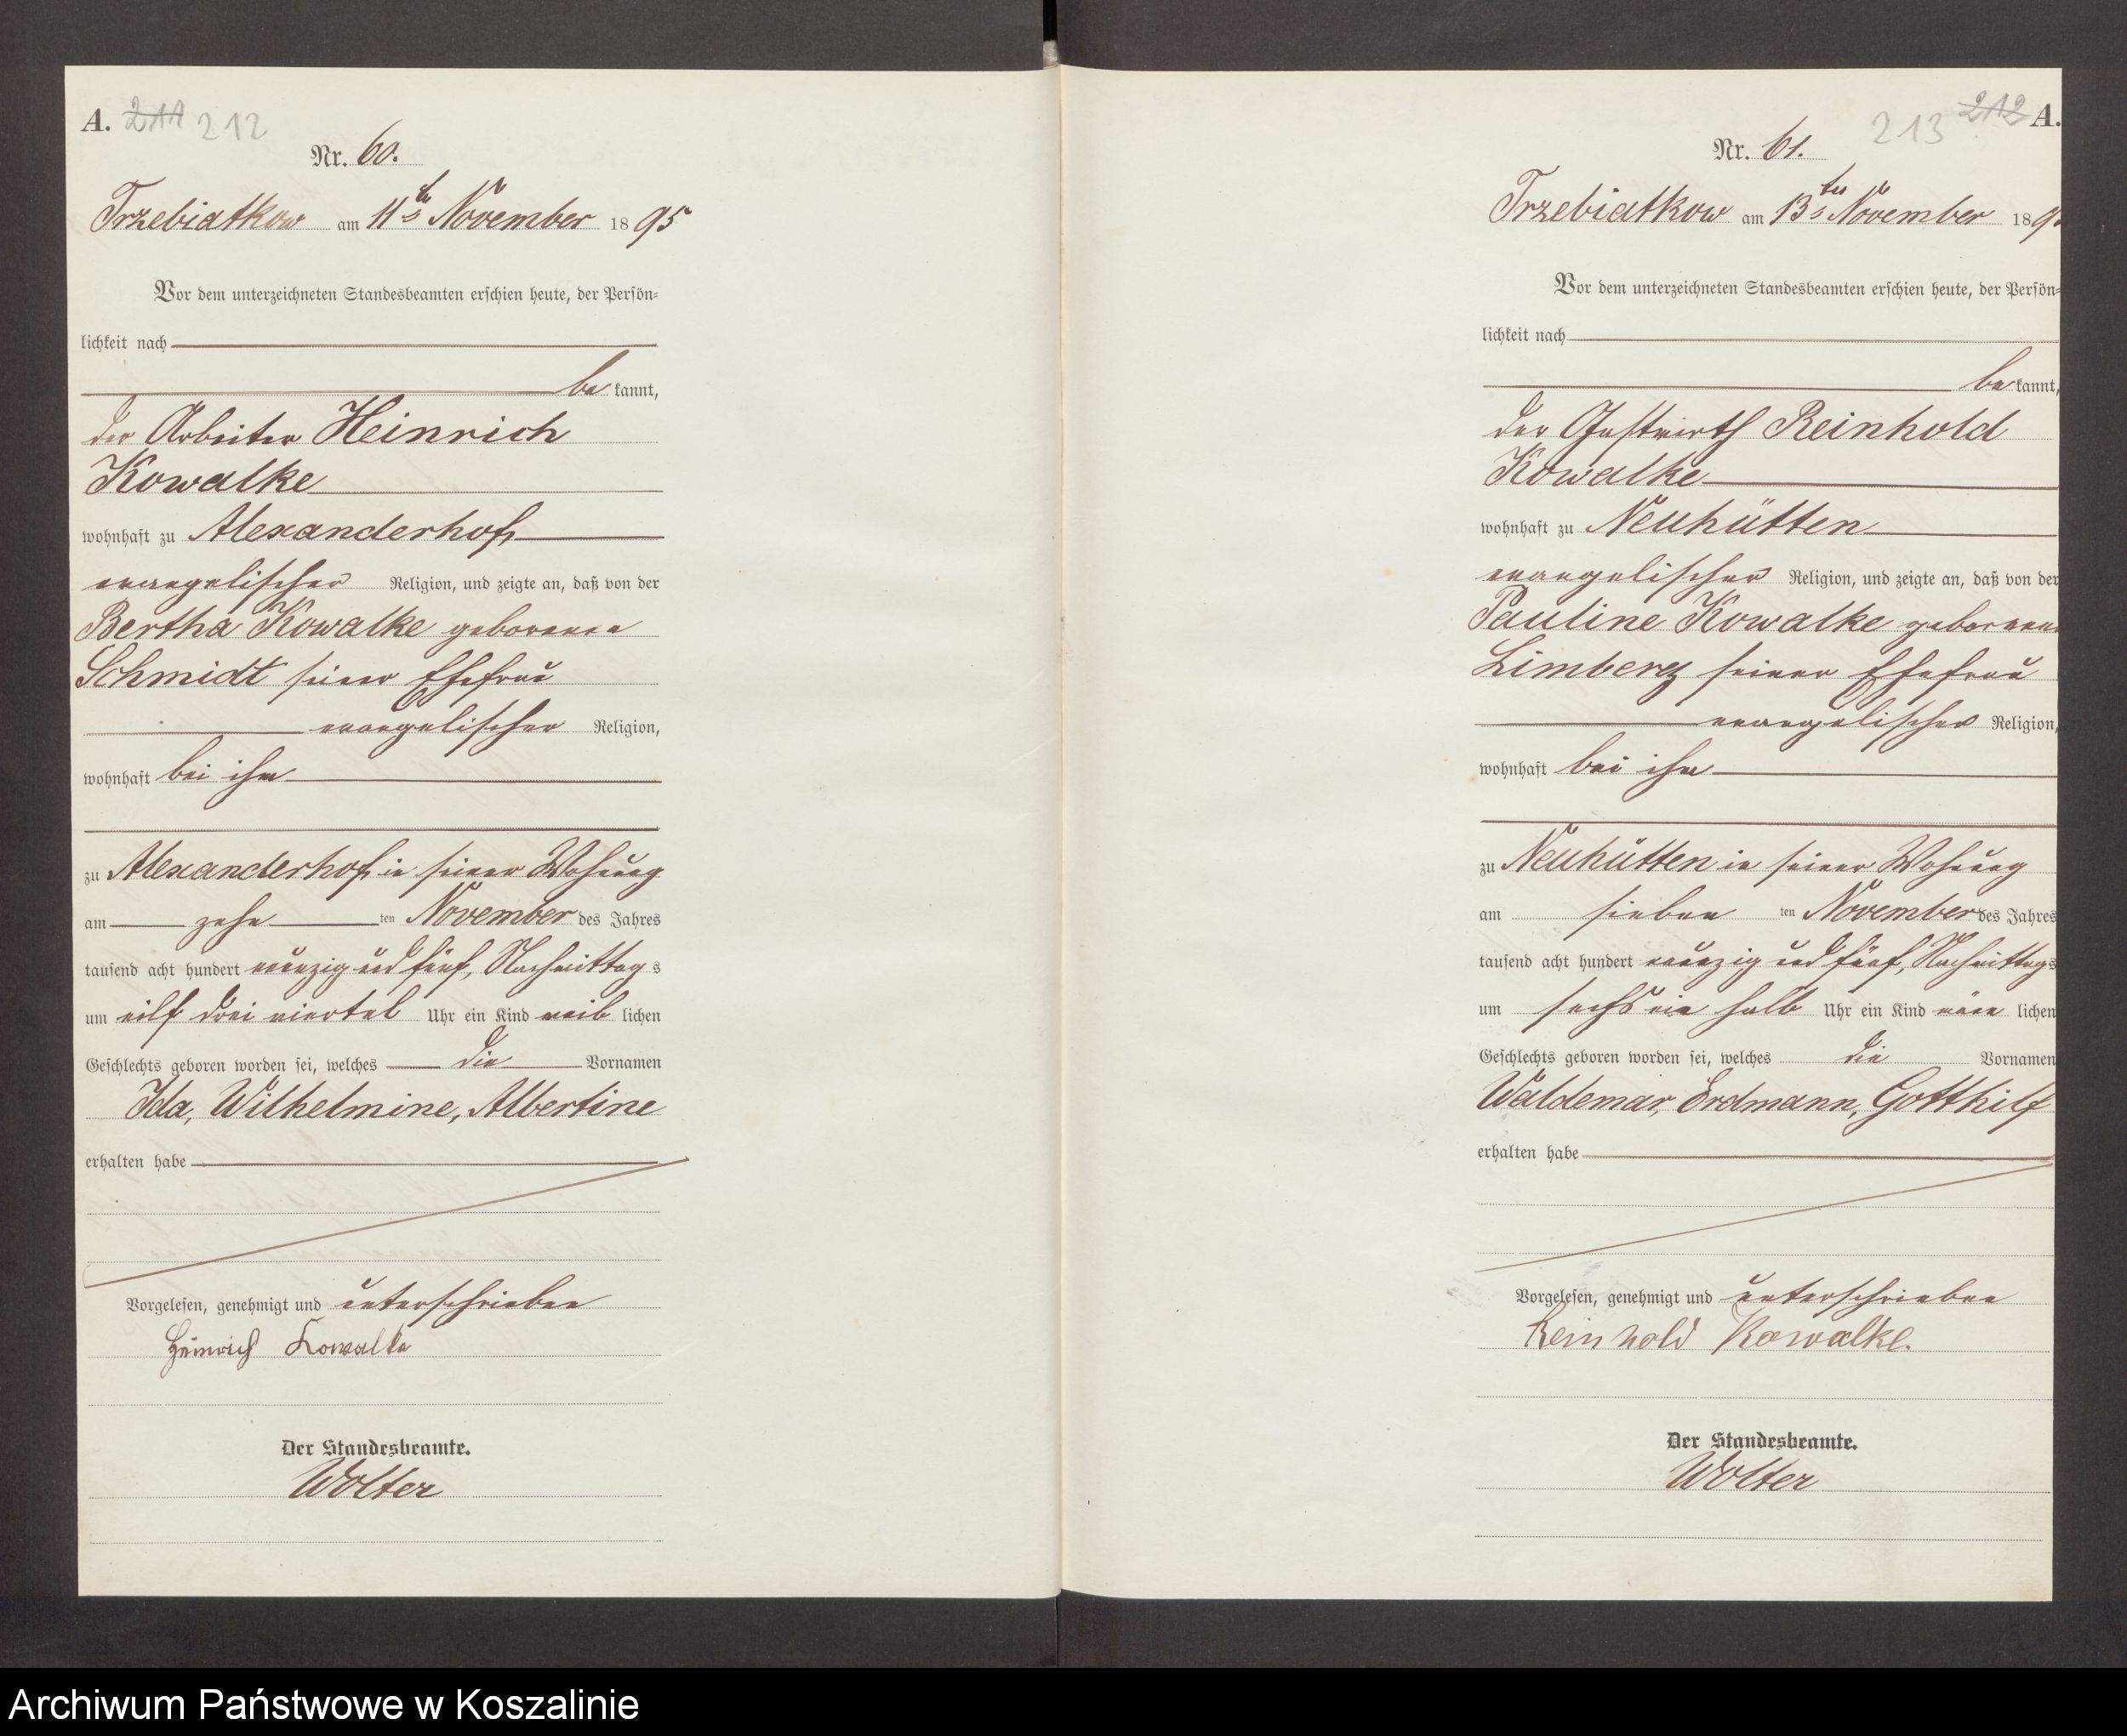 A. 211 212
Nr. 60.
Trzebiatkow am 11ten November 1895
Vor dem unterzeichneten Standesbeamten erschien heute, der Persön-
lichkeit nach
bekannt,
der Arbeiter Heinrich
Kowalke
wohnhaft zu Alexanderhof,
evangelischer Religion, und zeigte an, daß von der
Bertha Kowalke geborenen
Schmidt seiner Ehefrau
evangelischer Religion,
wohnhaft bei ihm
zu Alexanderhof, in seiner Wohnung
am zehn ten November des Jahres
tausend acht hundert neunzig und fünf, Nachmittags
um eilf drei viertel Uhr ein Kind weiblichen
Geschlechts geboren worden sei, welches die Vornamen
Ida, Wilhelmine, Albertine
erhalten habe
Vorgelesen, genehmigt und unterschrieben
Heinrich Kowalke
Der Standesbeamte.
Wolter
213 212 A.
Nr. 61.
Trzebiatkow am 13ten November 189
Vor dem unterzeichneten Standesbeamten erschien heute, der Persön-
lichkeit nach
bekannt,
der Gastwirth Reinhold
Kowalke
wohnhaft zu Neuhütten
evangelischer Religion, und zeigte an, daß von der
Pauline Kowalke geborenen
Limberg seiner Ehefrau
evangelischer Religion,
wohnhaft bei ihm
zu Neuhütten in seiner Wohnung
am sieben ten November des Jahres
tausend acht hundert neunzig und fünf, Nachmittags
um sechs ein halb Uhr ein Kind männlichen
Geschlechts geboren worden sei, welches die Vornamen
Waldemar, Erdmann, Gotthilf
erhalten habe
Vorgelesen, genehmigt und unterschrieben
Reinhold Kowalke.
Der Standesbeamte.
Wolter
Archiwum Państwowe w Koszalinie